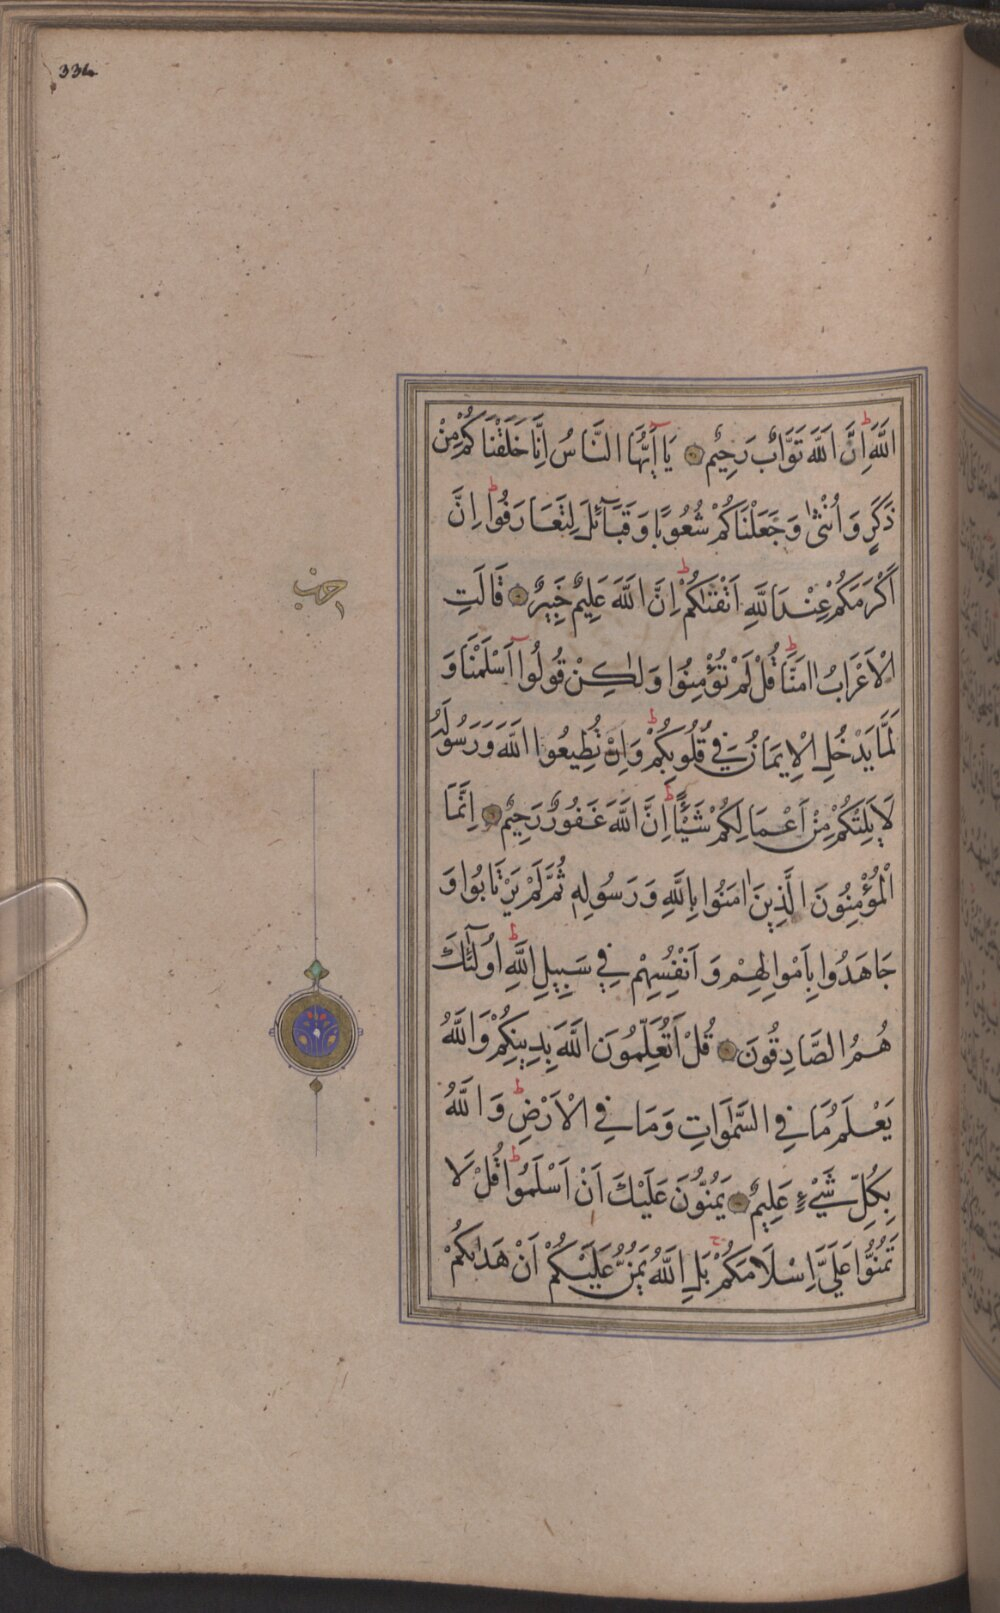 334
اللَّهَ اِنَّ اللَّهَ تَوَّابٌ رَحِيمٌ يَا اَيُّهَا النَّاسُ اِنَّا خَلَقْنَاكُمْ مِنْ
ذَكَرٍ وَاُنْثٰى وَجَعَلْنَاكُمْ شُعُوبًا وَقَبَآئِلَ لِتَعَارَفُوا اِنَّ
اَكْرَمَكُمْ عِنْدَ اللَّهِ اَتْقٰىكُمْ اِنَّ اللَّهَ عَلِيمٌ خَبِيرٌ قَالَتِ
الْاَعْرَابُ اٰمَنَّا قُلْ لَمْ تُؤْمِنُوا وَلٰكِنْ قُولُوآ اَسْلَمْنَا وَ
لَمَّا يَدْخُلِ الْاِيمَانُ فِي قُلُوبِكُمْ وَاِنْ تُطِيعُوا اللَّهَ وَرَسُولَهُ
لَا يَلِتْكُمْ مِنْ اَعْمَالِكُمْ شَيْئًا اِنَّ اللَّهَ غَفُورٌ رَحِيمٌ اِنَّمَا
الْمُؤْمِنُونَ الَّذِينَ اٰمَنُوا بِاللَّهِ وَرَسُولِهِ ثُمَّ لَمْ يَرْتَابُوا وَ
جَاهَدُوا بِاَمْوَالِهِمْ وَاَنْفُسِهِمْ فِي سَبِيلِ اللَّهِ اُولٰٓئِكَ
هُمُ الصَّادِقُونَ قُلْ اَتُعَلِّمُونَ اللَّهَ بِدِينِكُمْ وَاللَّهُ
يَعْلَمُ مَا فِي السَّمٰوَاتِ وَمَا فِي الْاَرْضِ وَاللَّهُ
بِكُلِّ شَيْءٍ عَلِيمٌ يَمُنُّونَ عَلَيْكَ اَنْ اَسْلَمُوا قُلْ لَا
تَمُنُّوا عَلَيَّ اِسْلَامَكُمْ بَلِ اللَّهُ يَمُنُّ عَلَيْكُمْ اَنْ هَدٰىكُمْ